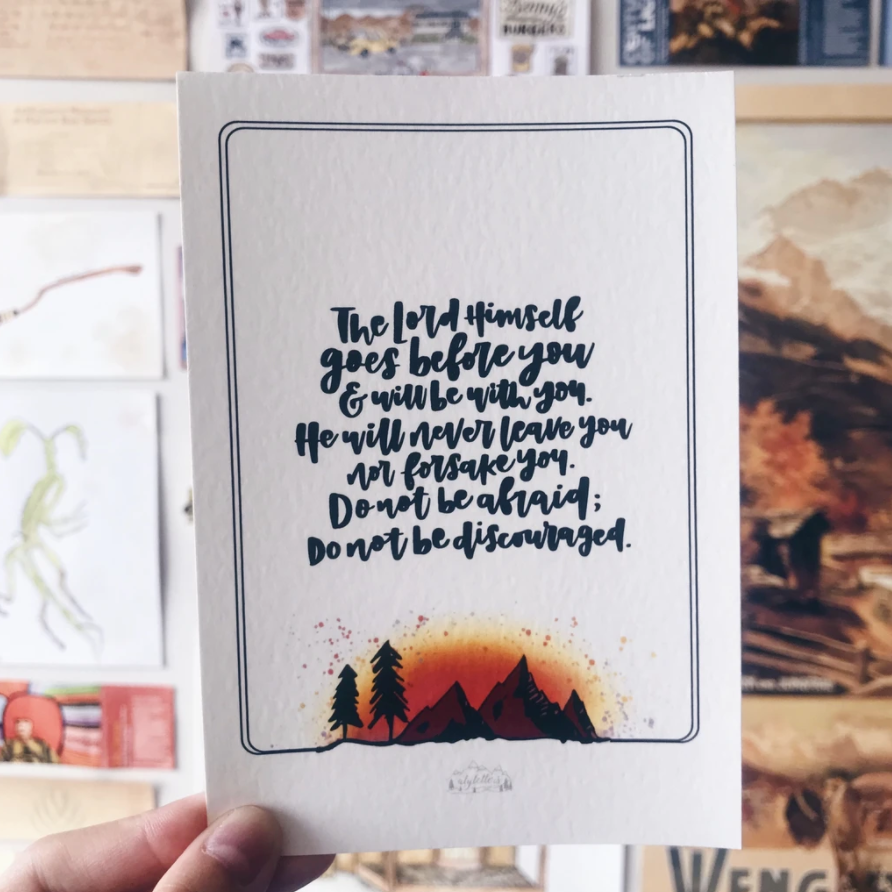 The Lord Himself
goes before you
& will be with you.
He will never leave you
nor forsake you.
Do not be afraid;
Do not be discouraged.
WENG